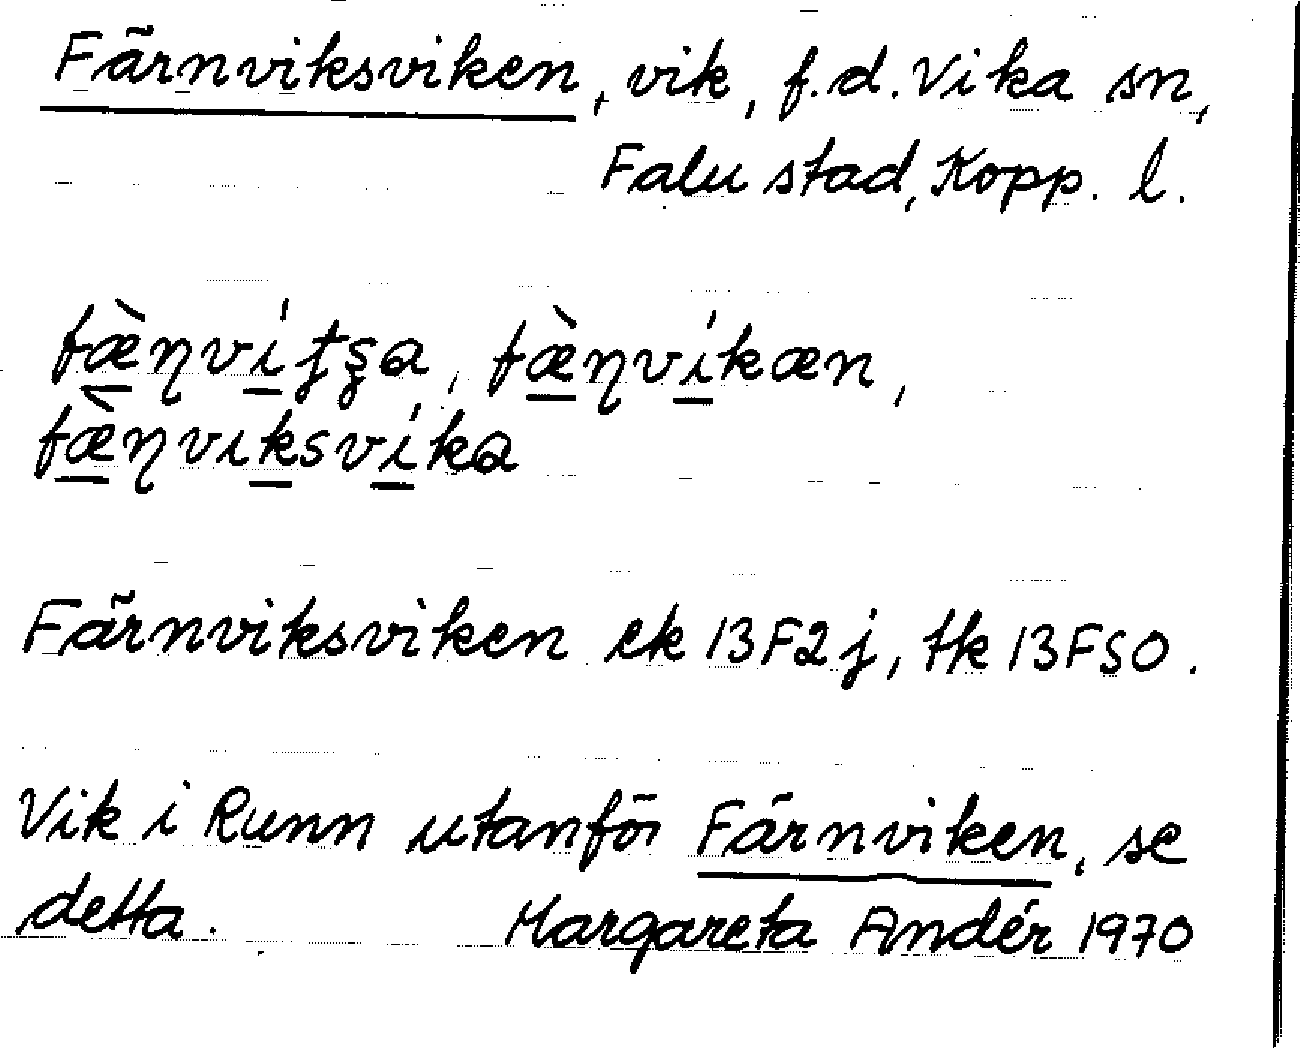 Färnviksviken, vik, f.d. Vika sn,
Falu stad, Kopp. l.
fæ̀ɳvíʈʂa, fæ̀ɳvíkæn,
fæ̀ɳviksvíka
Färnviksviken ek 13F2j, tk 13FSO.
Vik i Runn utanför Färnviken, se
detta. Margareta Andér 1970